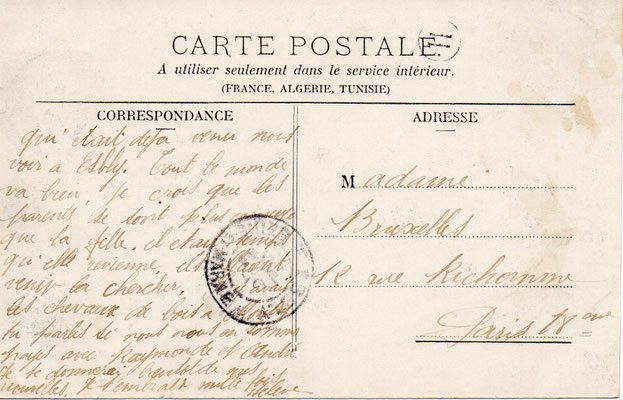 CARTE POSTALE
III
A utiliser seulement dans le service intérieur.
(FRANCE, ALGERIE, TUNISIE)
CORRESPONDANCE
qui était déjà venu nous
voir à Esbly. Tout le monde
va bien, je crois que les
parents se sont plus
que la fille. il était temps
qu'elle revienne, ils
venus la chercher.
les chevaux de bois à
tu parles si nous nous en sommes
payés avec Raymonde et André
Je te donnerai bientôt de nos
nouvelles. Je t'embrasse mille fois
Hélène
ADRESSE
Madame
Bruxelles
12 rue Richomme
Paris 18eme